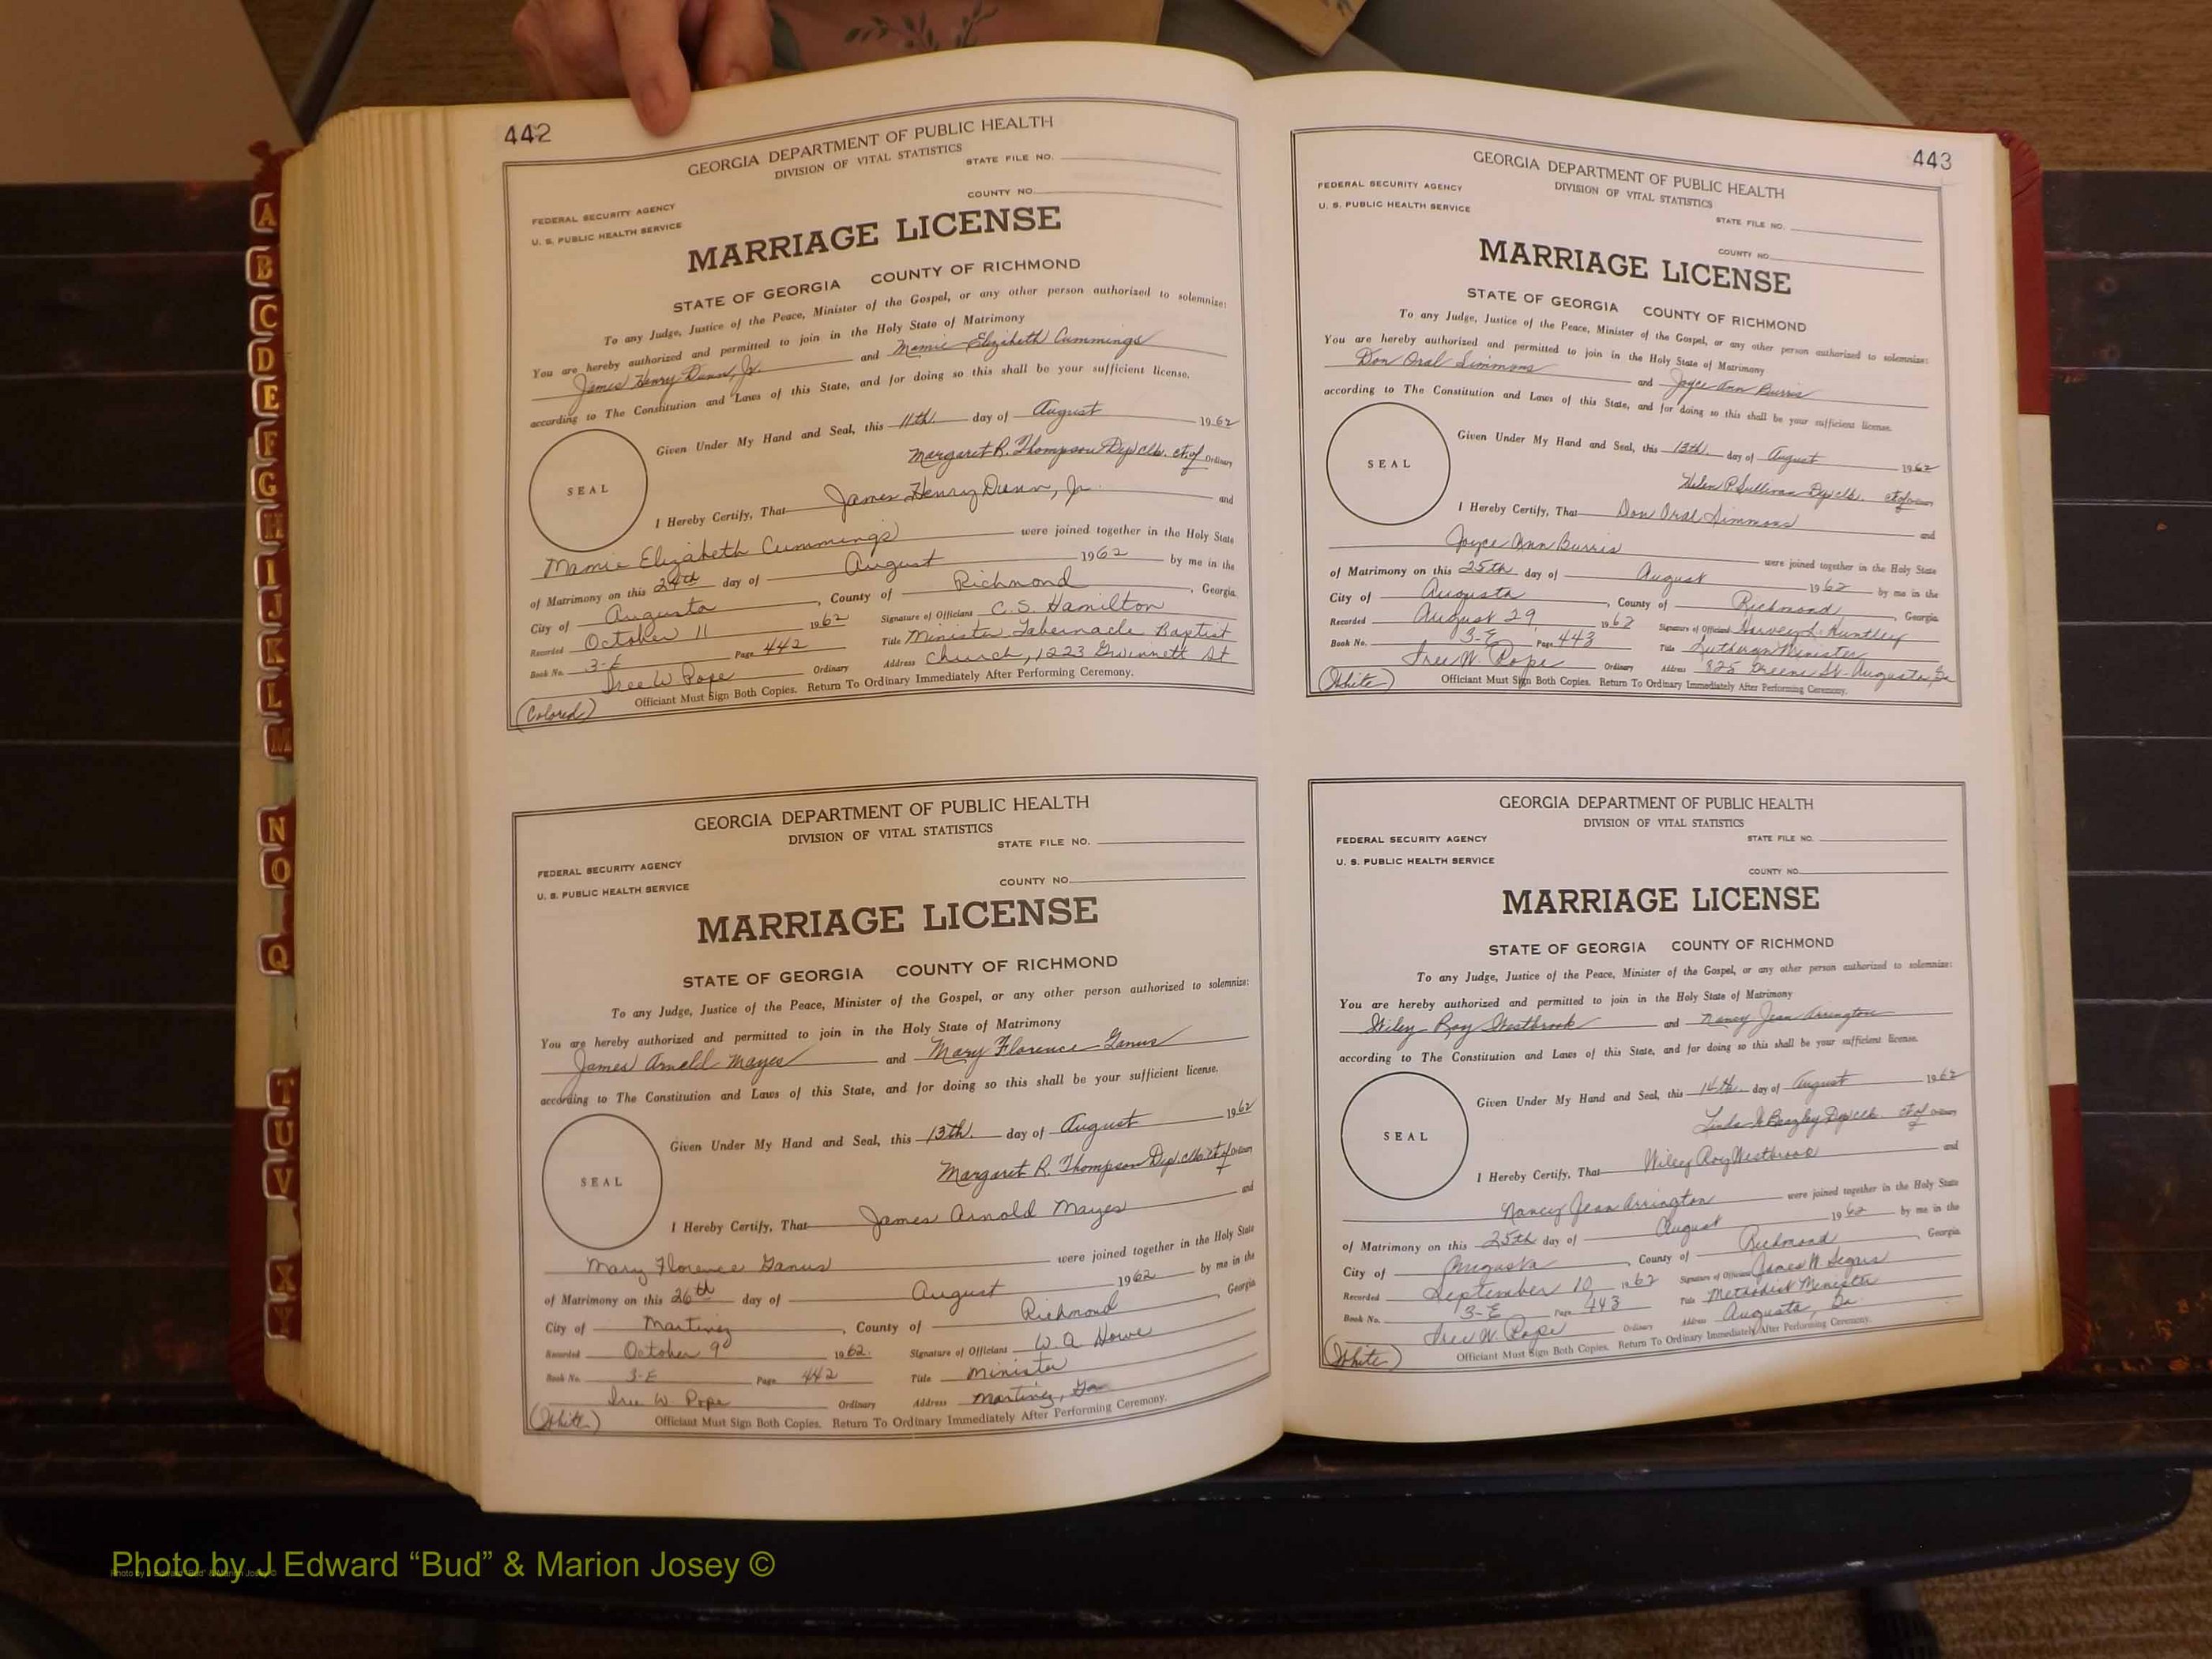 A
B
C
D
E
F
G
H
I
J
K
L
M
N
O
Q
T
U
V
X
Y
442
GEORGIA DEPARTMENT OF PUBLIC HEALTH
DIVISION OF VITAL STATISTICS
STATE FILE NO.
COUNTY NO.
FEDERAL SECURITY AGENCY
U. S. PUBLIC HEALTH SERVICE
MARRIAGE LICENSE
STATE OF GEORGIA COUNTY OF RICHMOND
To any Judge, Justice of the Peace, Minister of the Gospel, or any other person authorized to solemnize:
You are hereby authorized and permitted to join in the Holy State of Matrimony
James Henry Dunn, Jr. and Mamie Elizabeth Cummings
according to The Constitution and Laws of this State, and for doing so this shall be your sufficient license.
Given Under My Hand and Seal, this 11th. day of August 1962
Margaret R. Thompson Dep clk. ct. of Ordinary
SEAL
I Hereby Certify, That James Henry Dunn, Jr. and
Mamie Elizabeth Cummings were joined together in the Holy State
of Matrimony on this 24th day of August 1962 by me in the
City of Augusta, County of Richmond, Georgia.
Recorded October 11 1962 Signature of Officiant C. S. Hamilton
Book No. 3-E Page 442 Title Minister Tabernacle Baptist
Iree W. Pope Ordinary Address Church, 1223 Gwinnett St
Officiant Must Sign Both Copies. Return To Ordinary Immediately After Performing Ceremony.
(Colored)
GEORGIA DEPARTMENT OF PUBLIC HEALTH
DIVISION OF VITAL STATISTICS
STATE FILE NO.
FEDERAL SECURITY AGENCY
U. S. PUBLIC HEALTH SERVICE
COUNTY NO.
MARRIAGE LICENSE
STATE OF GEORGIA COUNTY OF RICHMOND
To any Judge, Justice of the Peace, Minister of the Gospel, or any other person authorized to solemnize:
You are hereby authorized and permitted to join in the Holy State of Matrimony
James Arnold Mayes and Mary Florence Ganus
according to The Constitution and Laws of this State, and for doing so this shall be your sufficient license.
Given Under My Hand and Seal, this 13th. day of August 1962
Margaret R. Thompson Dep. clk. ct. of Ordinary
SEAL
I Hereby Certify, That James Arnold Mayes and
Mary Florence Ganus were joined together in the Holy State
of Matrimony on this 26th day of August 1962 by me in the
City of Martinez, County of Richmond, Georgia
Recorded October 9 1962. Signature of Officiant W. A. Howe
Book No. 3-E Page 442 Title Minister
Iree W. Pope Ordinary Address Martinez, Ga
(White) Officiant Must Sign Both Copies. Return To Ordinary Immediately After Performing Ceremony.
443
GEORGIA DEPARTMENT OF PUBLIC HEALTH
DIVISION OF VITAL STATISTICS
FEDERAL SECURITY AGENCY
U. S. PUBLIC HEALTH SERVICE
STATE FILE NO.
COUNTY NO.
MARRIAGE LICENSE
STATE OF GEORGIA COUNTY OF RICHMOND
To any Judge, Justice of the Peace, Minister of the Gospel, or any other person authorized to solemnize:
You are hereby authorized and permitted to join in the Holy State of Matrimony
Don Oral Simmons and Joyce Ann Burris
according to The Constitution and Laws of this State, and for doing so this shall be your sufficient license.
Given Under My Hand and Seal, this 13th. day of August 1962
Helen P. Sullivan Dep clk. ct. of Ordinary
SEAL
I Hereby Certify, That Don Oral Simmons and
Joyce Ann Burris were joined together in the Holy State
of Matrimony on this 25th day of August 1962 by me in the
City of Augusta, County of Richmond, Georgia
Recorded August 29, 1962 Signature of Officiant Harvey L. Huntley
Book No. 3-E Page 443 Title Lutheran Minister
Iree W. Pope Ordinary Address 825 Greene St. Augusta, Ga
(White) Officiant Must Sign Both Copies. Return To Ordinary Immediately After Performing Ceremony.
GEORGIA DEPARTMENT OF PUBLIC HEALTH
DIVISION OF VITAL STATISTICS
FEDERAL SECURITY AGENCY STATE FILE NO.
U. S. PUBLIC HEALTH SERVICE
COUNTY NO.
MARRIAGE LICENSE
STATE OF GEORGIA COUNTY OF RICHMOND
To any Judge, Justice of the Peace, Minister of the Gospel, or any other person authorized to solemnize:
You are hereby authorized and permitted to join in the Holy State of Matrimony
Wiley Roy Westbrook and Nancy Jean Arrington
according to The Constitution and Laws of this State, and for doing so this shall be your sufficient license.
Given Under My Hand and Seal, this 14th. day of August 1962
Linda W. Beazley Dep clk. ct. of Ordinary
SEAL
I Hereby Certify, That Wiley Roy Westbrook and
Nancy Jean Arrington were joined together in the Holy State
of Matrimony on this 25th day of August 1962 by me in the
City of Augusta, County of Richmond, Georgia
Recorded September 10 1962 Signature of Officiant James W. Segars
Book No. 3-E Page 443 Title Methodist Minister
Iree W. Pope Ordinary Address Augusta, Ga.
(White) Officiant Must Sign Both Copies. Return To Ordinary Immediately After Performing Ceremony.
Photo by J Edward “Bud” & Marion Josey ©
Photo by J Edward "Bud" & Marion Josey ©